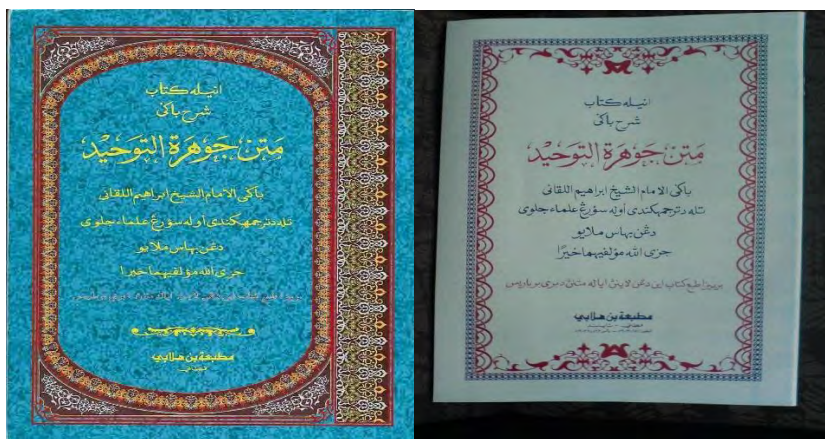 انيله كتاب
شرح باݢي
متن جوهرة التوحيد
باݢي الامام الشيخ ابراهيم اللقاني
تله دترجمهكندي اوله سؤرڠ علماء جاوي
دڠن بهاس ملايو
جزى الله مؤلفيهما خيرا
مطبعة بن هلابي
انيله كتاب
شرح باݢي
متن جوهرة التوحيد
باݢي الامام الشيخ ابراهيم اللقاني
تله دترجمهكندي اوله سؤرڠ علماء جلوي
دڠن بهاس ملايو
جزى الله مؤلفيهما خيرًا
بربيزا طبع كتاب اين دغن لاين اياله متنڽ دبري برباريس
مطبعة بن هلابي